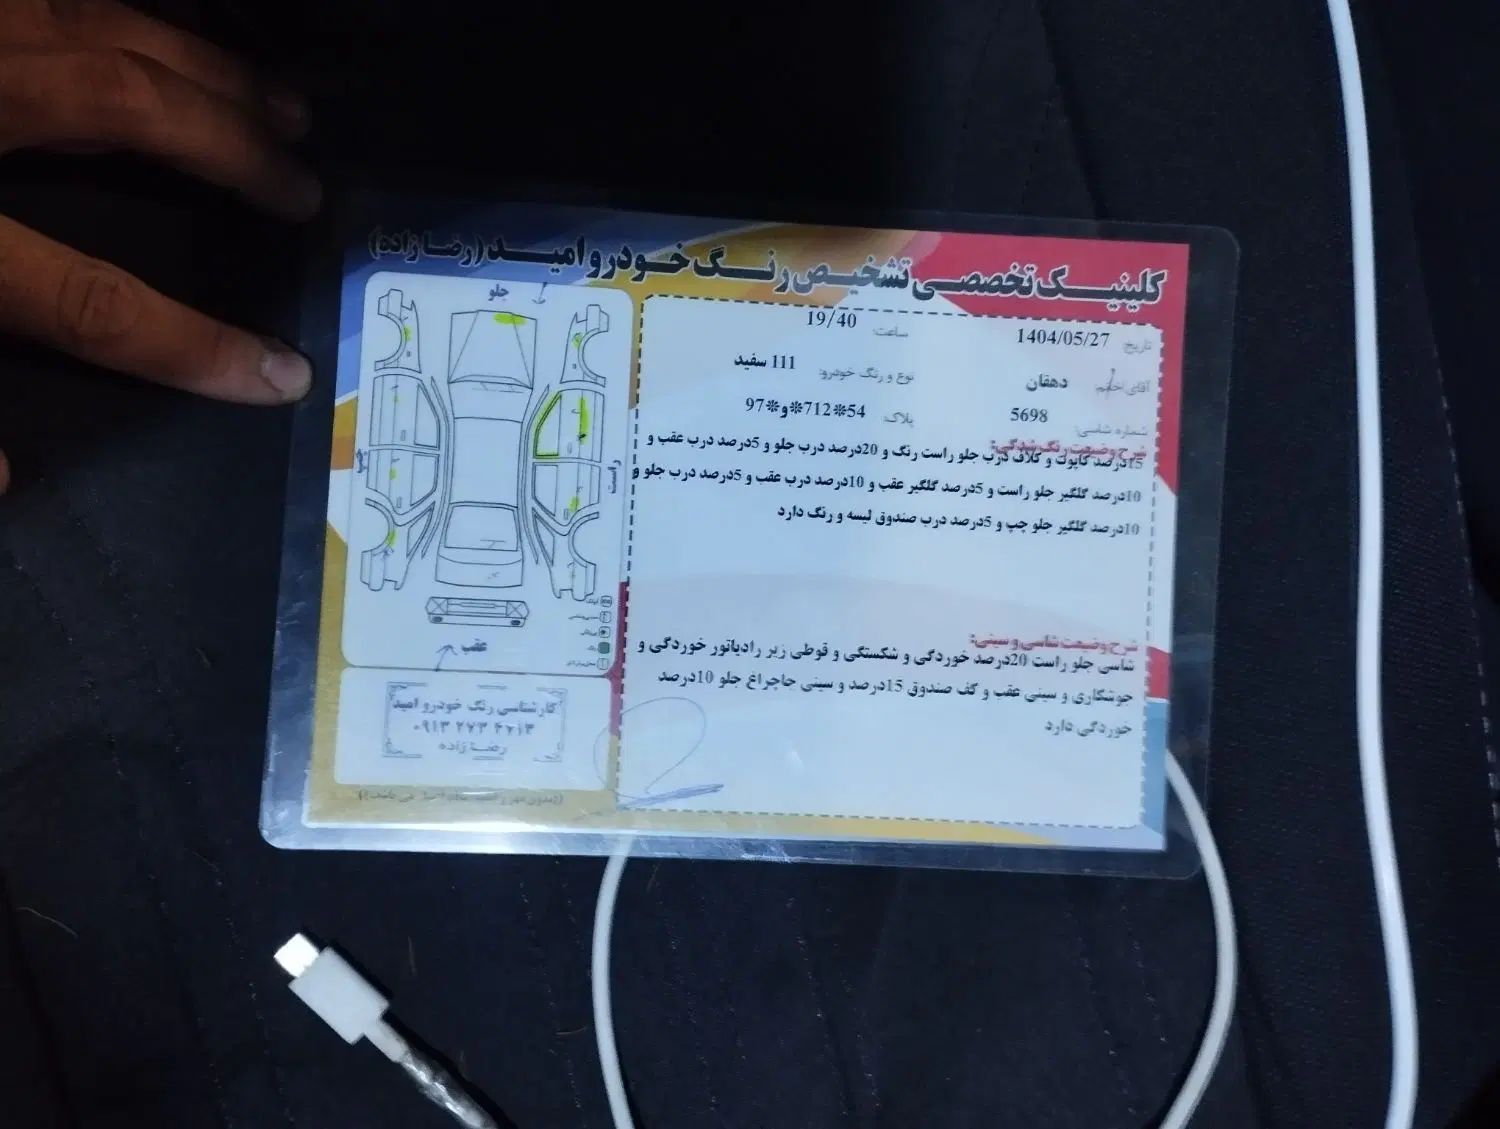 کلینیک تخصصی تشخیص رنگ خودرو امید (رضا زاده)
تاریخ: 1404/05/27 ساعت: 19/40
آقای/خانم: دهقان نوع و رنگ خودرو: 111 سفید
شماره شاسی: 5698 پلاک: 54*712*و*97
شرح وضعیت رنگ شدگی:
15درصد کاپوت و کلاف درب جلو راست رنگ و 20درصد درب جلو و 5درصد درب عقب و
10درصد گلگیر جلو راست و 5درصد گلگیر عقب و 10درصد درب عقب و 5درصد درب جلو و
10درصد گلگیر جلو چپ و 5درصد درب صندوق لیسه و رنگ دارد
شرح وضعیت شاسی و سینی:
شاسی جلو راست 20درصد خوردگی و شکستگی و قوطی زیر رادیاتور خوردگی و
جوشکاری و سینی عقب و کف صندوق 15درصد و سینی جاچراغ جلو 10درصد
خوردگی دارد
جلو
راست
عقب
کارشناسی رنگ خودرو امید
۰۹۱۳ ۲۷۳ ۴۷۱۳
رضا زاده